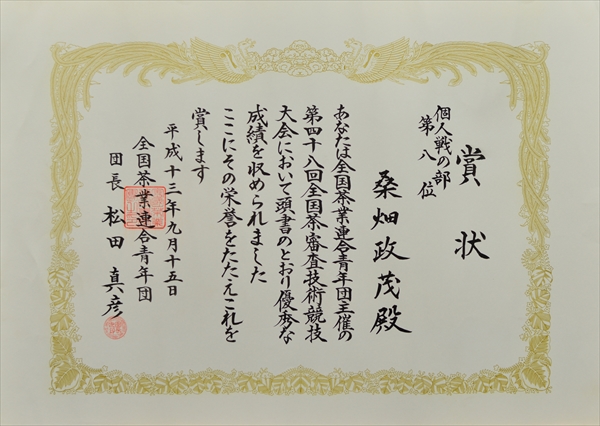 賞状
個人戦の部
第八位
桑畑政茂殿
あなたは全国茶業連合青年団主催の
第四十八回全国茶審査技術競技
大会において頭書のとおり優秀な
成績を収められました
ここにその栄誉をたたえこれを
賞します
平成十三年九月十五日
全国茶業連合青年団
団長 松田真彦